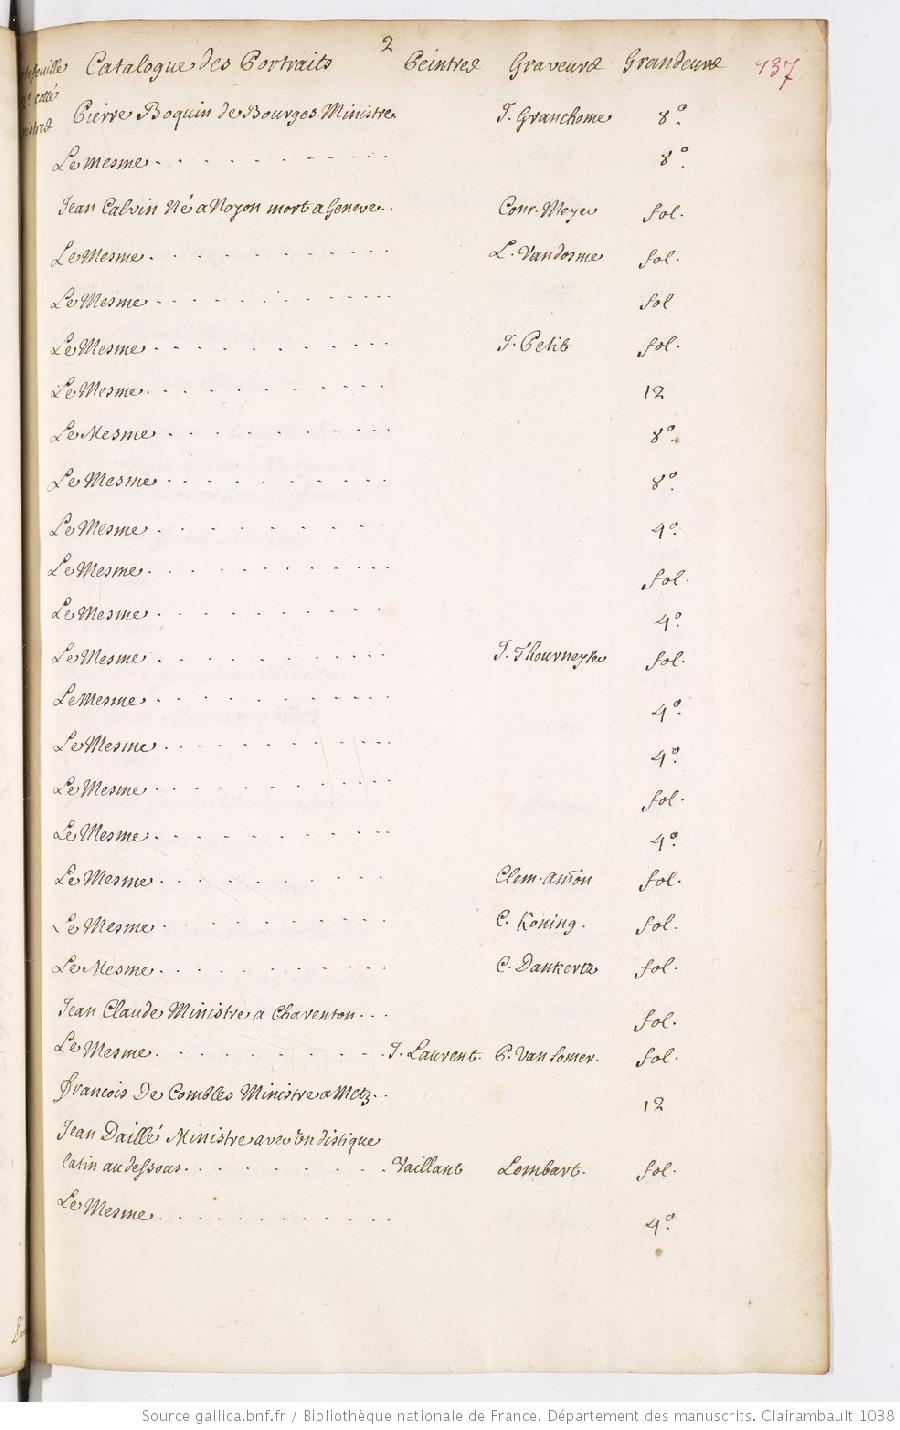 2
Catalogue des Portraits Peintres Graveurs Grandeurs 137
cotté
Pierre Boquin de Bourges Ministre J. Granthome 8º.
Le mesme 8º.
Jean Calvin Né a Noyon mort a Geneve Conr. Meyer fol.
Le Mesme L. Vandosme fol.
Le Mesme fol
Le Mesme J. Petit fol.
Le Mesme 12
Le Mesme 8º.
Le Mesme 8º.
Le Mesme 4º.
Le Mesme fol.
Le Mesme 4º.
Le Mesme J. Thourneyser fol.
Le Mesme 4º.
Le Mesme 4º.
Le Mesme fol.
Le Mesme 4º.
Le Mesme Clem. Amon fol.
Le Mesme C. Koning. fol.
Le Mesme C. Dankertz fol.
Jean Claude Ministre a Charenton fol.
Le Mesme J. Laurent. P. Van Somer. fol.
françois De Combles Ministre a Metz 12
Jean Daillé Ministre avec un distique
latin au dessous Vaillant Lombart. fol.
Le Mesme 4º.
Source gallica.bnf.fr / Bibliothèque nationale de France. Département des manuscrits. Clairambault 1038